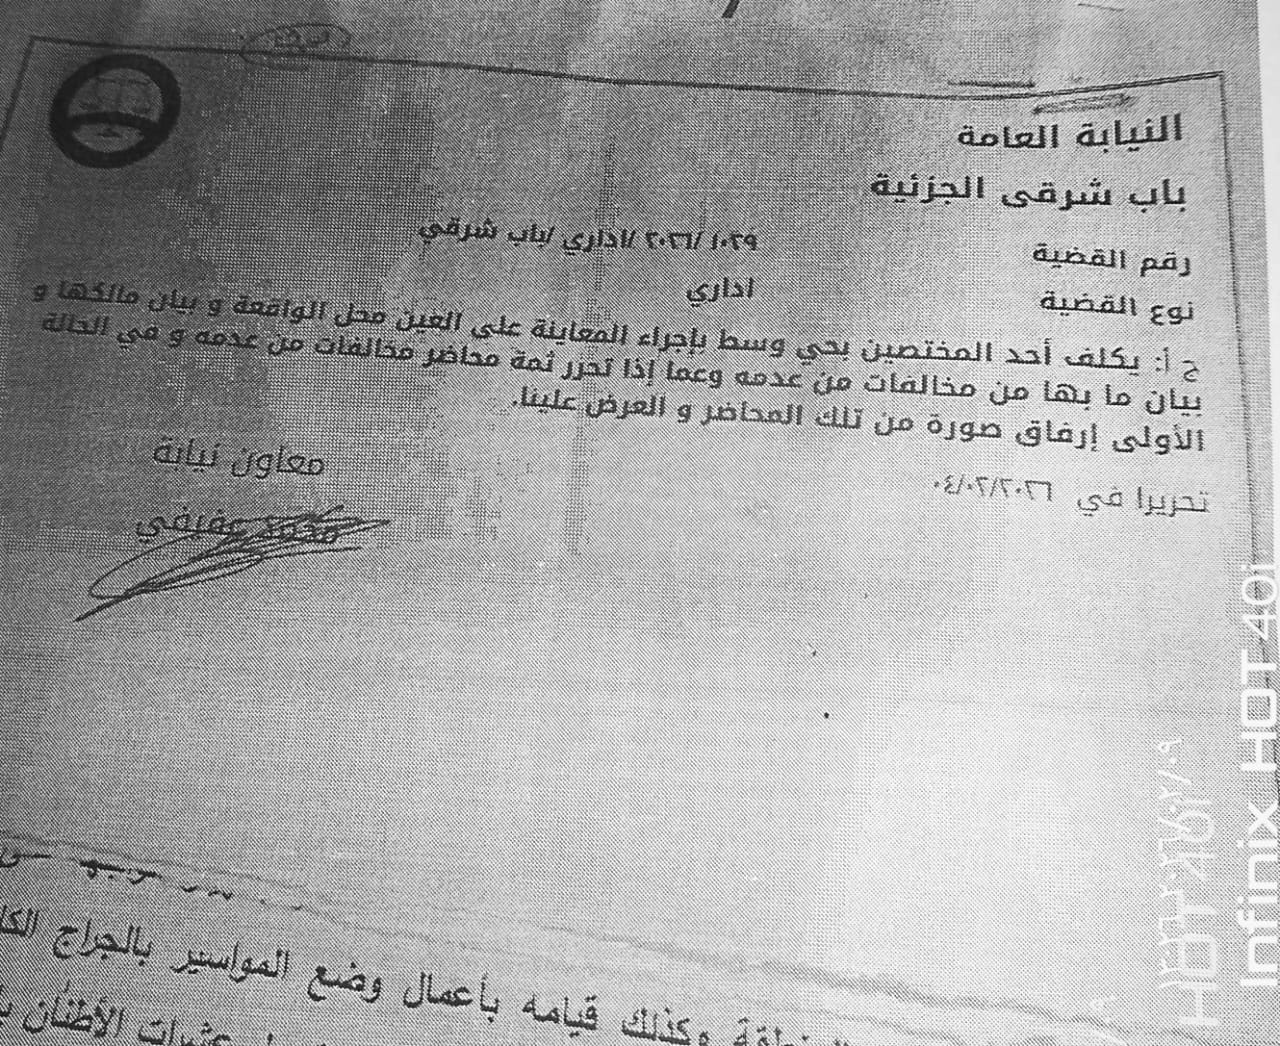 النيابة العامة
باب شرقى الجزئية
رقم القضية ١٠٢٩ /٢٠٢٦ /اداري /باب شرقي
نوع القضية اداري
ج أ: يكلف أحد المختصين بحي وسط بإجراء المعاينة على العين محل الواقعة و بيان مالكها و
بيان ما بها من مخالفات من عدمه وعما إذا تحرر ثمة محاضر مخالفات من عدمه و في الحالة
الأولى إرفاق صورة من تلك المحاضر و العرض علينا.
تحريرا في ٠٤/٠٢/٢٠٢٦
معاون نيابة
محمد عفيفي
وكذلك قيامه بأعمال وضع المواسير بالجراج
عشرات الأطنان
Infinix HOT 40i